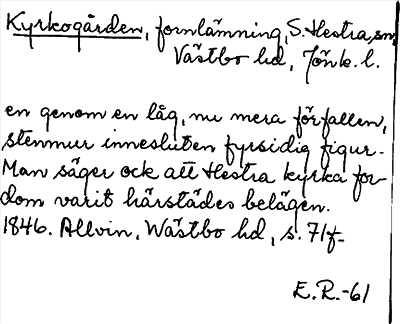 Kyrkogården, fornlämning, S. Hestra sn,
Västbo hd, Jönk. l.
en genom en låg, nu mera förfallen,
stenmur innesluten fyrsidig figur.
Man säger ock att Hestra kyrka for-
dom varit härstädes belägen.
1846. Allvin, Wästbo hd, s. 71f.
E. R. -61